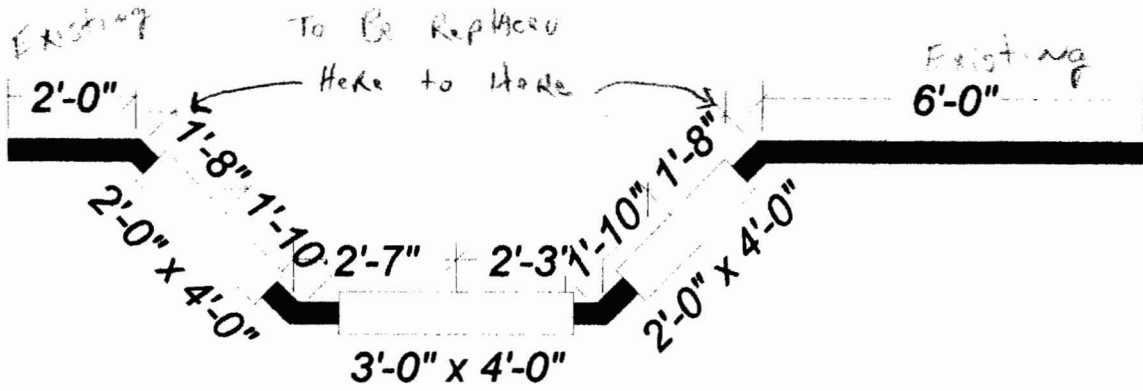 Existing
To Be Replaced
Here to Here
Existing
2'-0"
6'-0"
1'-8"
1'-10
2'-0" x 4'-0"
2'-7"
2'-3'
1'-10"
1'-8"
2'-0" x 4'-0"
3'-0" x 4'-0"